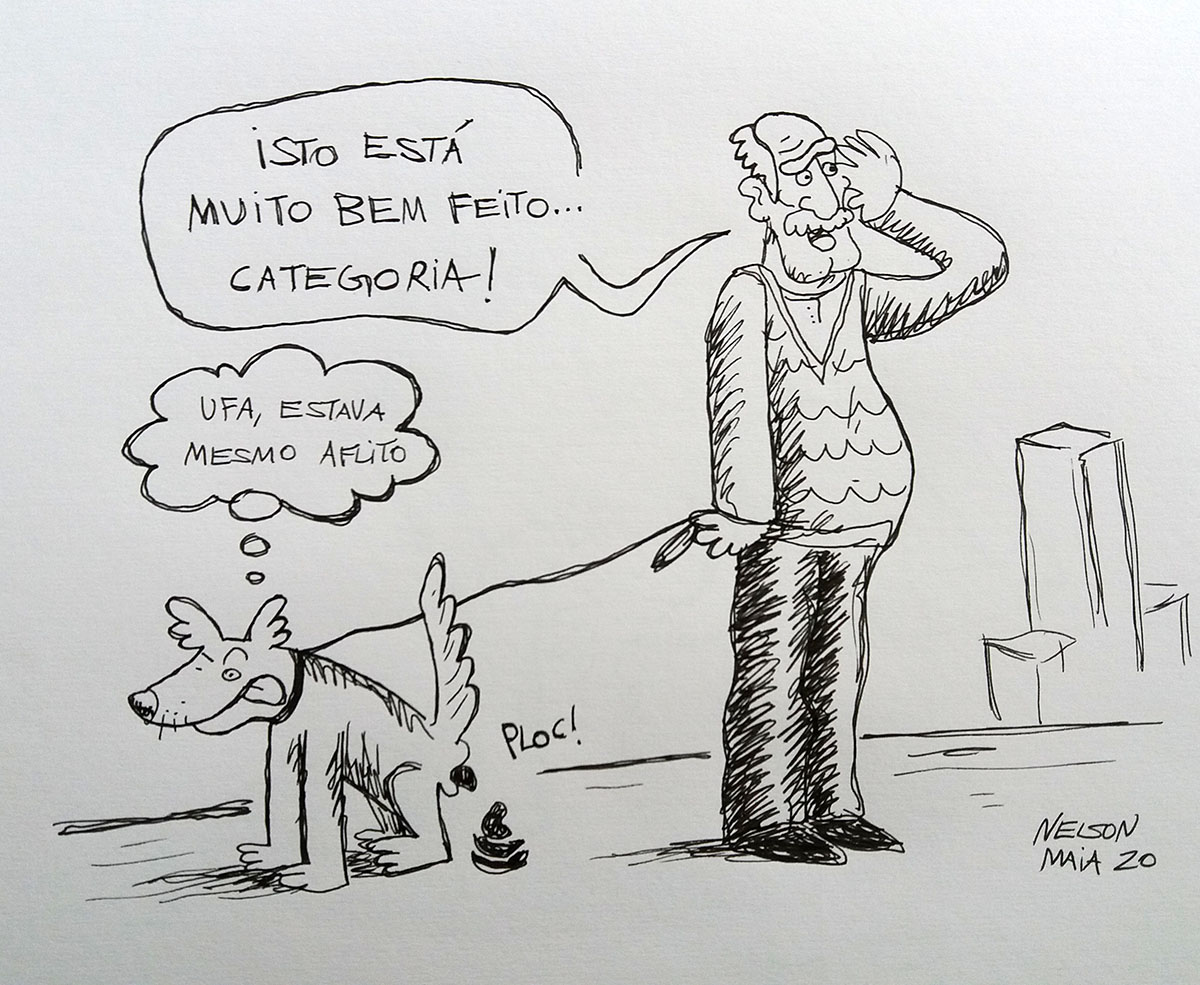 ISTO ESTÁ
MUITO BEM FEITO...
CATEGORIA!
UFA, ESTAVA
MESMO AFLITO
PLOC!
NELSON
MAIA 20